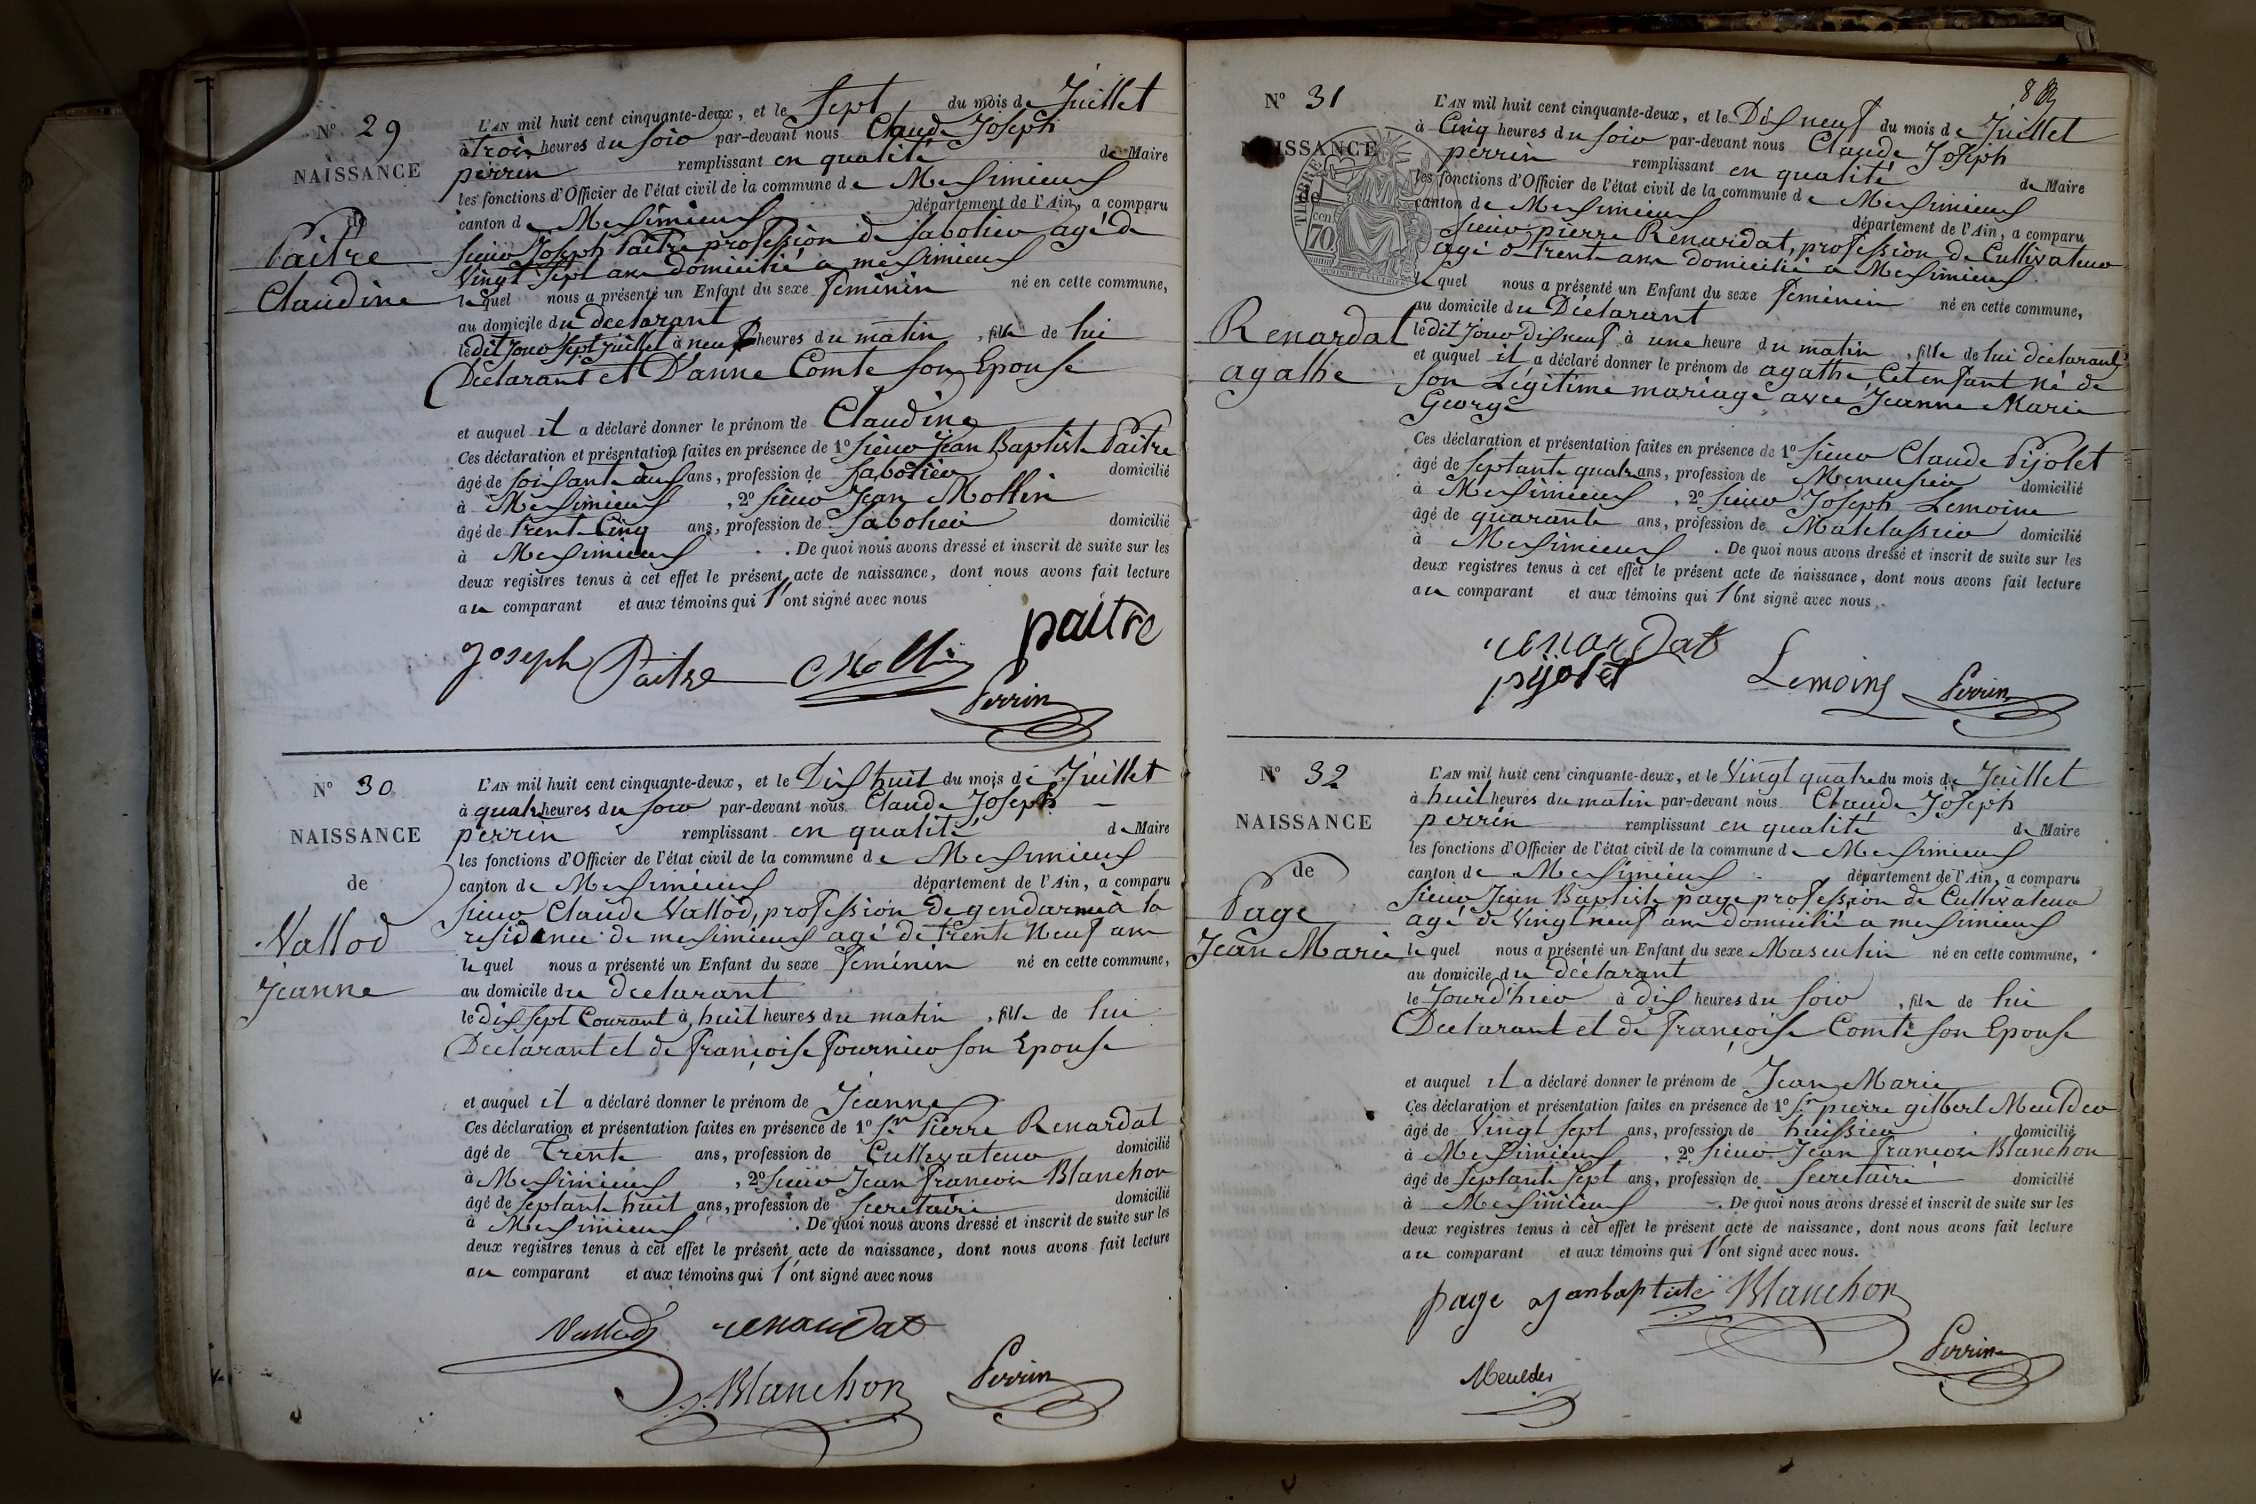 N° 29
NAISSANCE
de
Paitre
Claudine
L'AN mil huit cent cinquante-deux, et le Sept du mois de Juillet
à trois heures du soir par-devant nous Claude Joseph
perrin remplissant en qualité de Maire
les fonctions d'Officier de l'état civil de la commune de Meximieux
canton de Meximieux département de l'Ain, a comparu
Sieur Joseph Paitre profession de Sabotier agé de
Vingt Sept ans domicilié a meximieux
lequel nous a présenté un Enfant du sexe feminin né en cette commune,
au domicile du declarant
le dit jour Sept Juillet à neuf heures du matin, fille de lui
Déclarant et D'anne Comte son Epouse
et auquel il a déclaré donner le prénom de Claudine
Ces déclaration et présentation faites en présence de 1° Sieur Jean Baptiste Paitre
âgé de soixante deux ans, profession de Sabotier domicilié
à Meximieux, 2° Sieur Jean Mollin
âgé de trente Cinq ans, profession de Sabotier domicilié
à Meximieux. De quoi nous avons dressé et inscrit de suite sur les
deux registres tenus à cet effet le présent acte de naissance, dont nous avons fait lecture
au comparant et aux témoins qui l'ont signé avec nous
paitre
Joseph Paitre Mollin
Perrin
N° 30
NAISSANCE
de
Vallod
Jeanne
L'AN mil huit cent cinquante-deux, et le Dix huit du mois de Juillet
à quatre heures du soir par-devant nous Claude Joseph
perrin remplissant en qualité de Maire
les fonctions d'Officier de l'état civil de la commune de Meximieux
canton de Meximieux département de l'Ain, a comparu
Sieur Claude Vallod, profession de gendarme à la
residence de meximieux agé de trente Neuf ans
lequel nous a présenté un Enfant du sexe féminin né en cette commune,
au domicile du declarant
le dix sept Courant à huit heures du matin, fille de lui
Déclarant et de françoise fournier son Epouse
et auquel il a déclaré donner le prénom de Jeanne
Ces déclaration et présentation faites en présence de 1° Sr Pierre Renardat
âgé de Trente ans, profession de Cultivateur domicilié
à Meximieux, 2° Sieur Jean francois Blanchon
âgé de Septante huit ans, profession de Secretaire domicilié
à Meximieux. De quoi nous avons dressé et inscrit de suite sur les
deux registres tenus à cet effet le présent acte de naissance, dont nous avons fait lecture
au comparant et aux témoins qui l'ont signé avec nous
Vallod renardat
Blanchon Perrin
N° 31
NAISSANCE
de
TIMBRE
70
cen
Renardat
agathe
L'AN mil huit cent cinquante-deux, et le Dix neuf du mois de Juillet
à Cinq heures du soir par-devant nous Claude Joseph
perrin remplissant en qualité de Maire
les fonctions d'Officier de l'état civil de la commune de Meximieux
canton de Meximieux département de l'Ain, a comparu
Sieur pierre Renardat, profession de Cultivateur
agé de trente ans domicilié a Meximieux
lequel nous a présenté un Enfant du sexe féminin né en cette commune,
au domicile du Déclarant
le dit jour dix neuf à une heure du matin, fille de lui déclarant
et auquel il a déclaré donner le prénom de agathe, Cet enfant né de
son Légitime mariage avec Jeanne Marie
George
Ces déclaration et présentation faites en présence de 1° Sieur Claude Pijolet
âgé de Septante quatre ans, profession de Menuisier domicilié
à Meximieux, 2° Sieur Joseph Lemoine
âgé de quarante ans, profession de Matelassier domicilié
à Meximieux. De quoi nous avons dressé et inscrit de suite sur les
deux registres tenus à cet effet le présent acte de naissance, dont nous avons fait lecture
au comparant et aux témoins qui l'ont signé avec nous.
renardat
pijolet Lemoine Perrin
N° 32
NAISSANCE
de
Page
Jean Marie
L'AN mil huit cent cinquante-deux, et le Vingt quatre du mois de Juillet
à huit heures du matin par-devant nous Claude Joseph
perrin remplissant en qualité de Maire
les fonctions d'Officier de l'état civil de la commune de Meximieux
canton de Meximieux département de l'Ain, a comparu
Sieur Jean Baptiste page profession de Cultivateur
agé de Vingt neuf ans domicilié a meximieux
lequel nous a présenté un Enfant du sexe Masculin né en cette commune,
au domicile du déclarant
le Jourd'hier à dix heures du soir, fils de lui
Déclarant et de françoise Comte son Epouse
et auquel il a déclaré donner le prénom de Jean Marie
Ces déclaration et présentation faites en présence de 1° Sr pierre gilbert Meulder
âgé de Vingt sept ans, profession de huissier domicilié
à Meximieux, 2° Sieur Jean francois Blanchon
âgé de Septante Sept ans, profession de Secretaire domicilié
à Meximieux. De quoi nous avons dressé et inscrit de suite sur les
deux registres tenus à cet effet le présent acte de naissance, dont nous avons fait lecture
au comparant et aux témoins qui l'ont signé avec nous.
page janbaptiste Blanchon
Perrin
Meulder